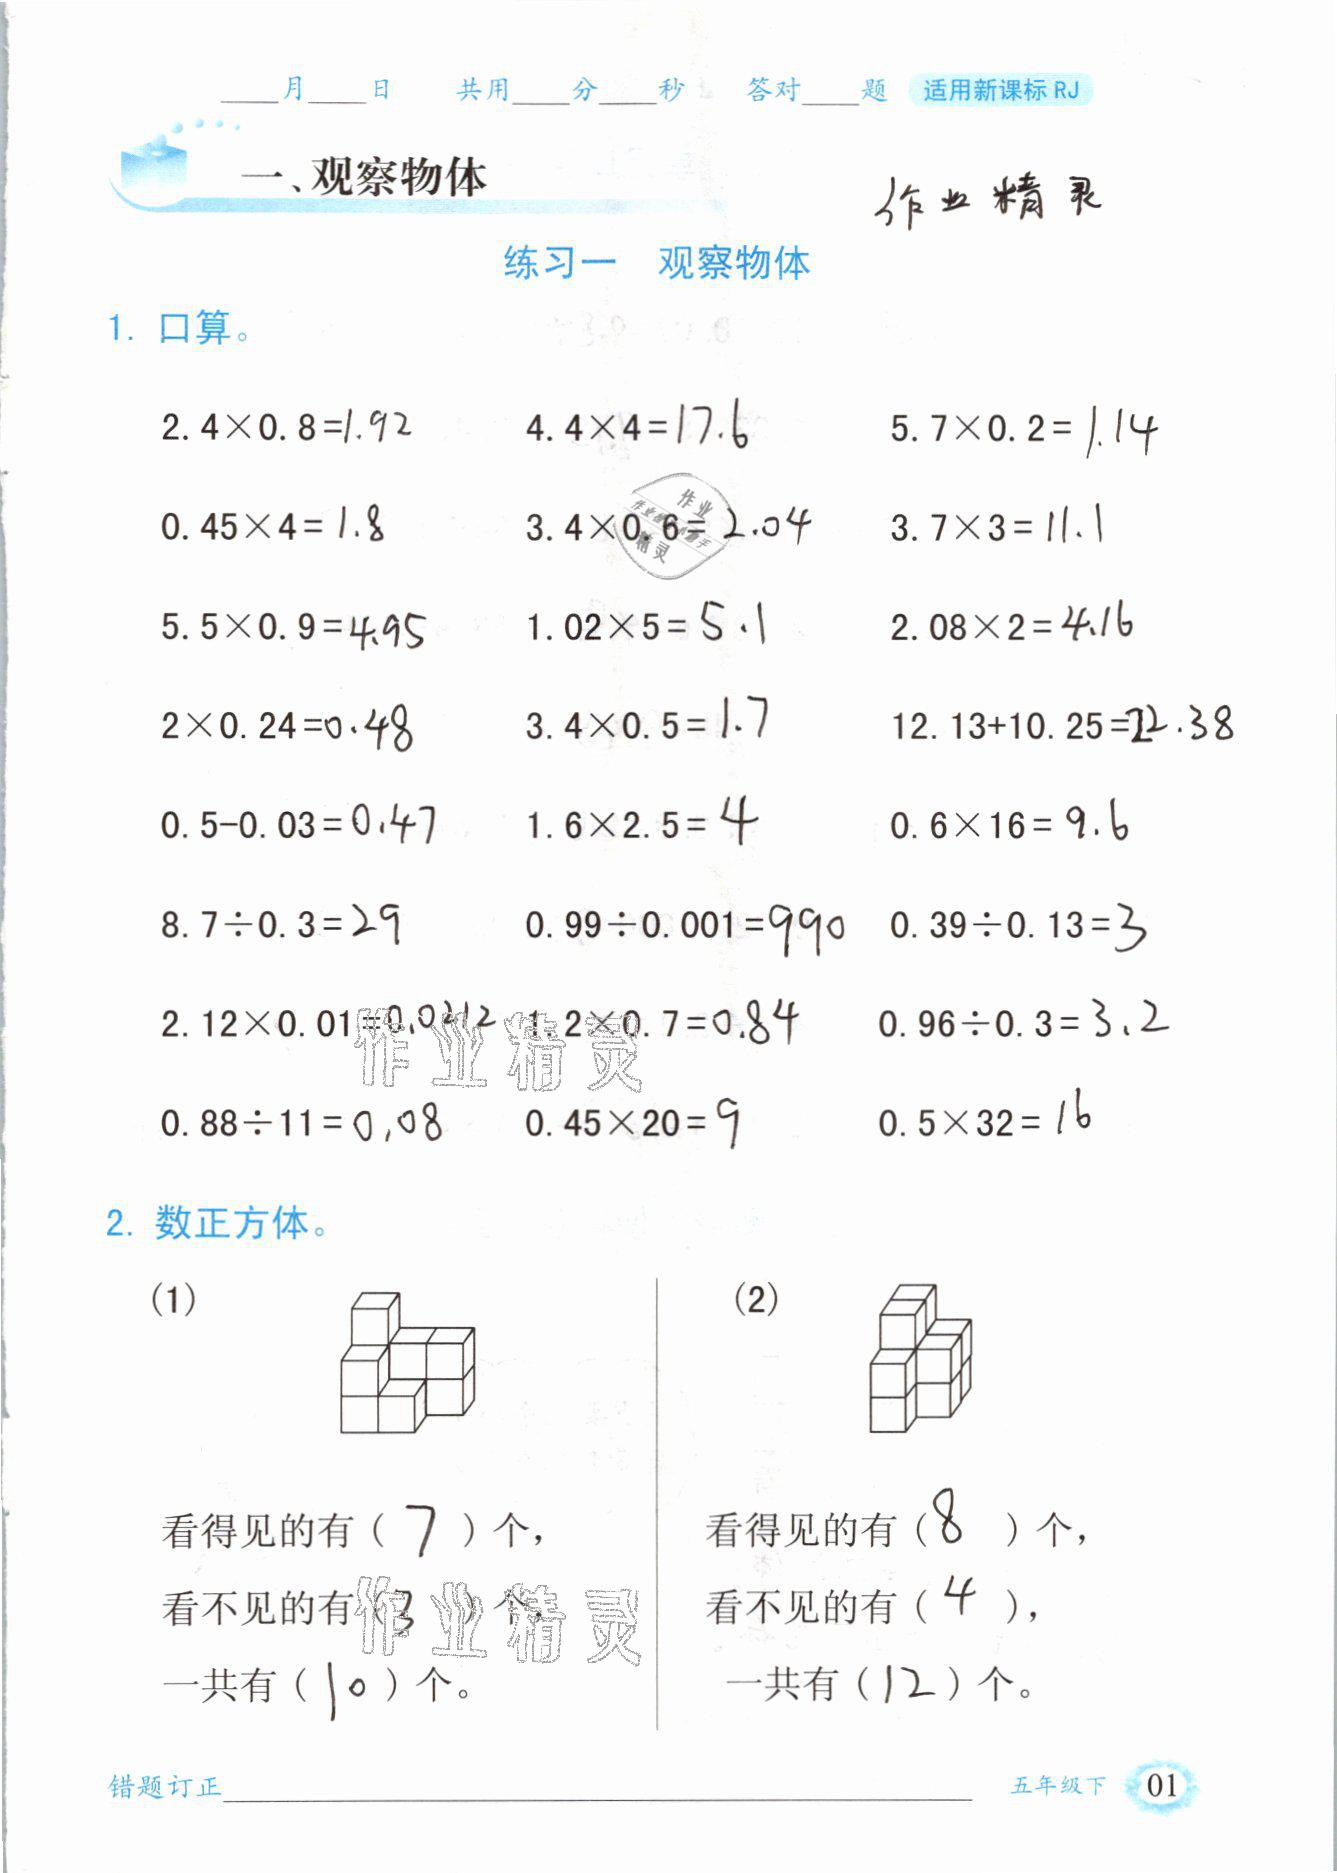 ____月____日 共用____分____秒 答对____题 适用新课标 RJ
一、观察物体
作业精灵
练习一 观察物体
1. 口算。
2.4×0.8=1.92 4.4×4=17.6 5.7×0.2=1.14
0.45×4=1.8 3.4×0.6=2.04 3.7×3=11.1
5.5×0.9=4.95 1.02×5=5.1 2.08×2=4.16
2×0.24=0.48 3.4×0.5=1.7 12.13+10.25=22.38
0.5-0.03=0.47 1.6×2.5=4 0.6×16=9.6
8.7÷0.3=29 0.99÷0.001=990 0.39÷0.13=3
2.12×0.01=0.0212 1.2×0.7=0.84 0.96÷0.3=3.2
作业精灵
0.88÷11=0.08 0.45×20=9 0.5×32=16
2. 数正方体。
(1) (2)
看得见的有（7）个， 看得见的有（8）个，
看不见的有（3）个， 看不见的有（4），
作业精灵
一共有（10）个。 一共有（12）个。
错题订正____ 五年级下 01